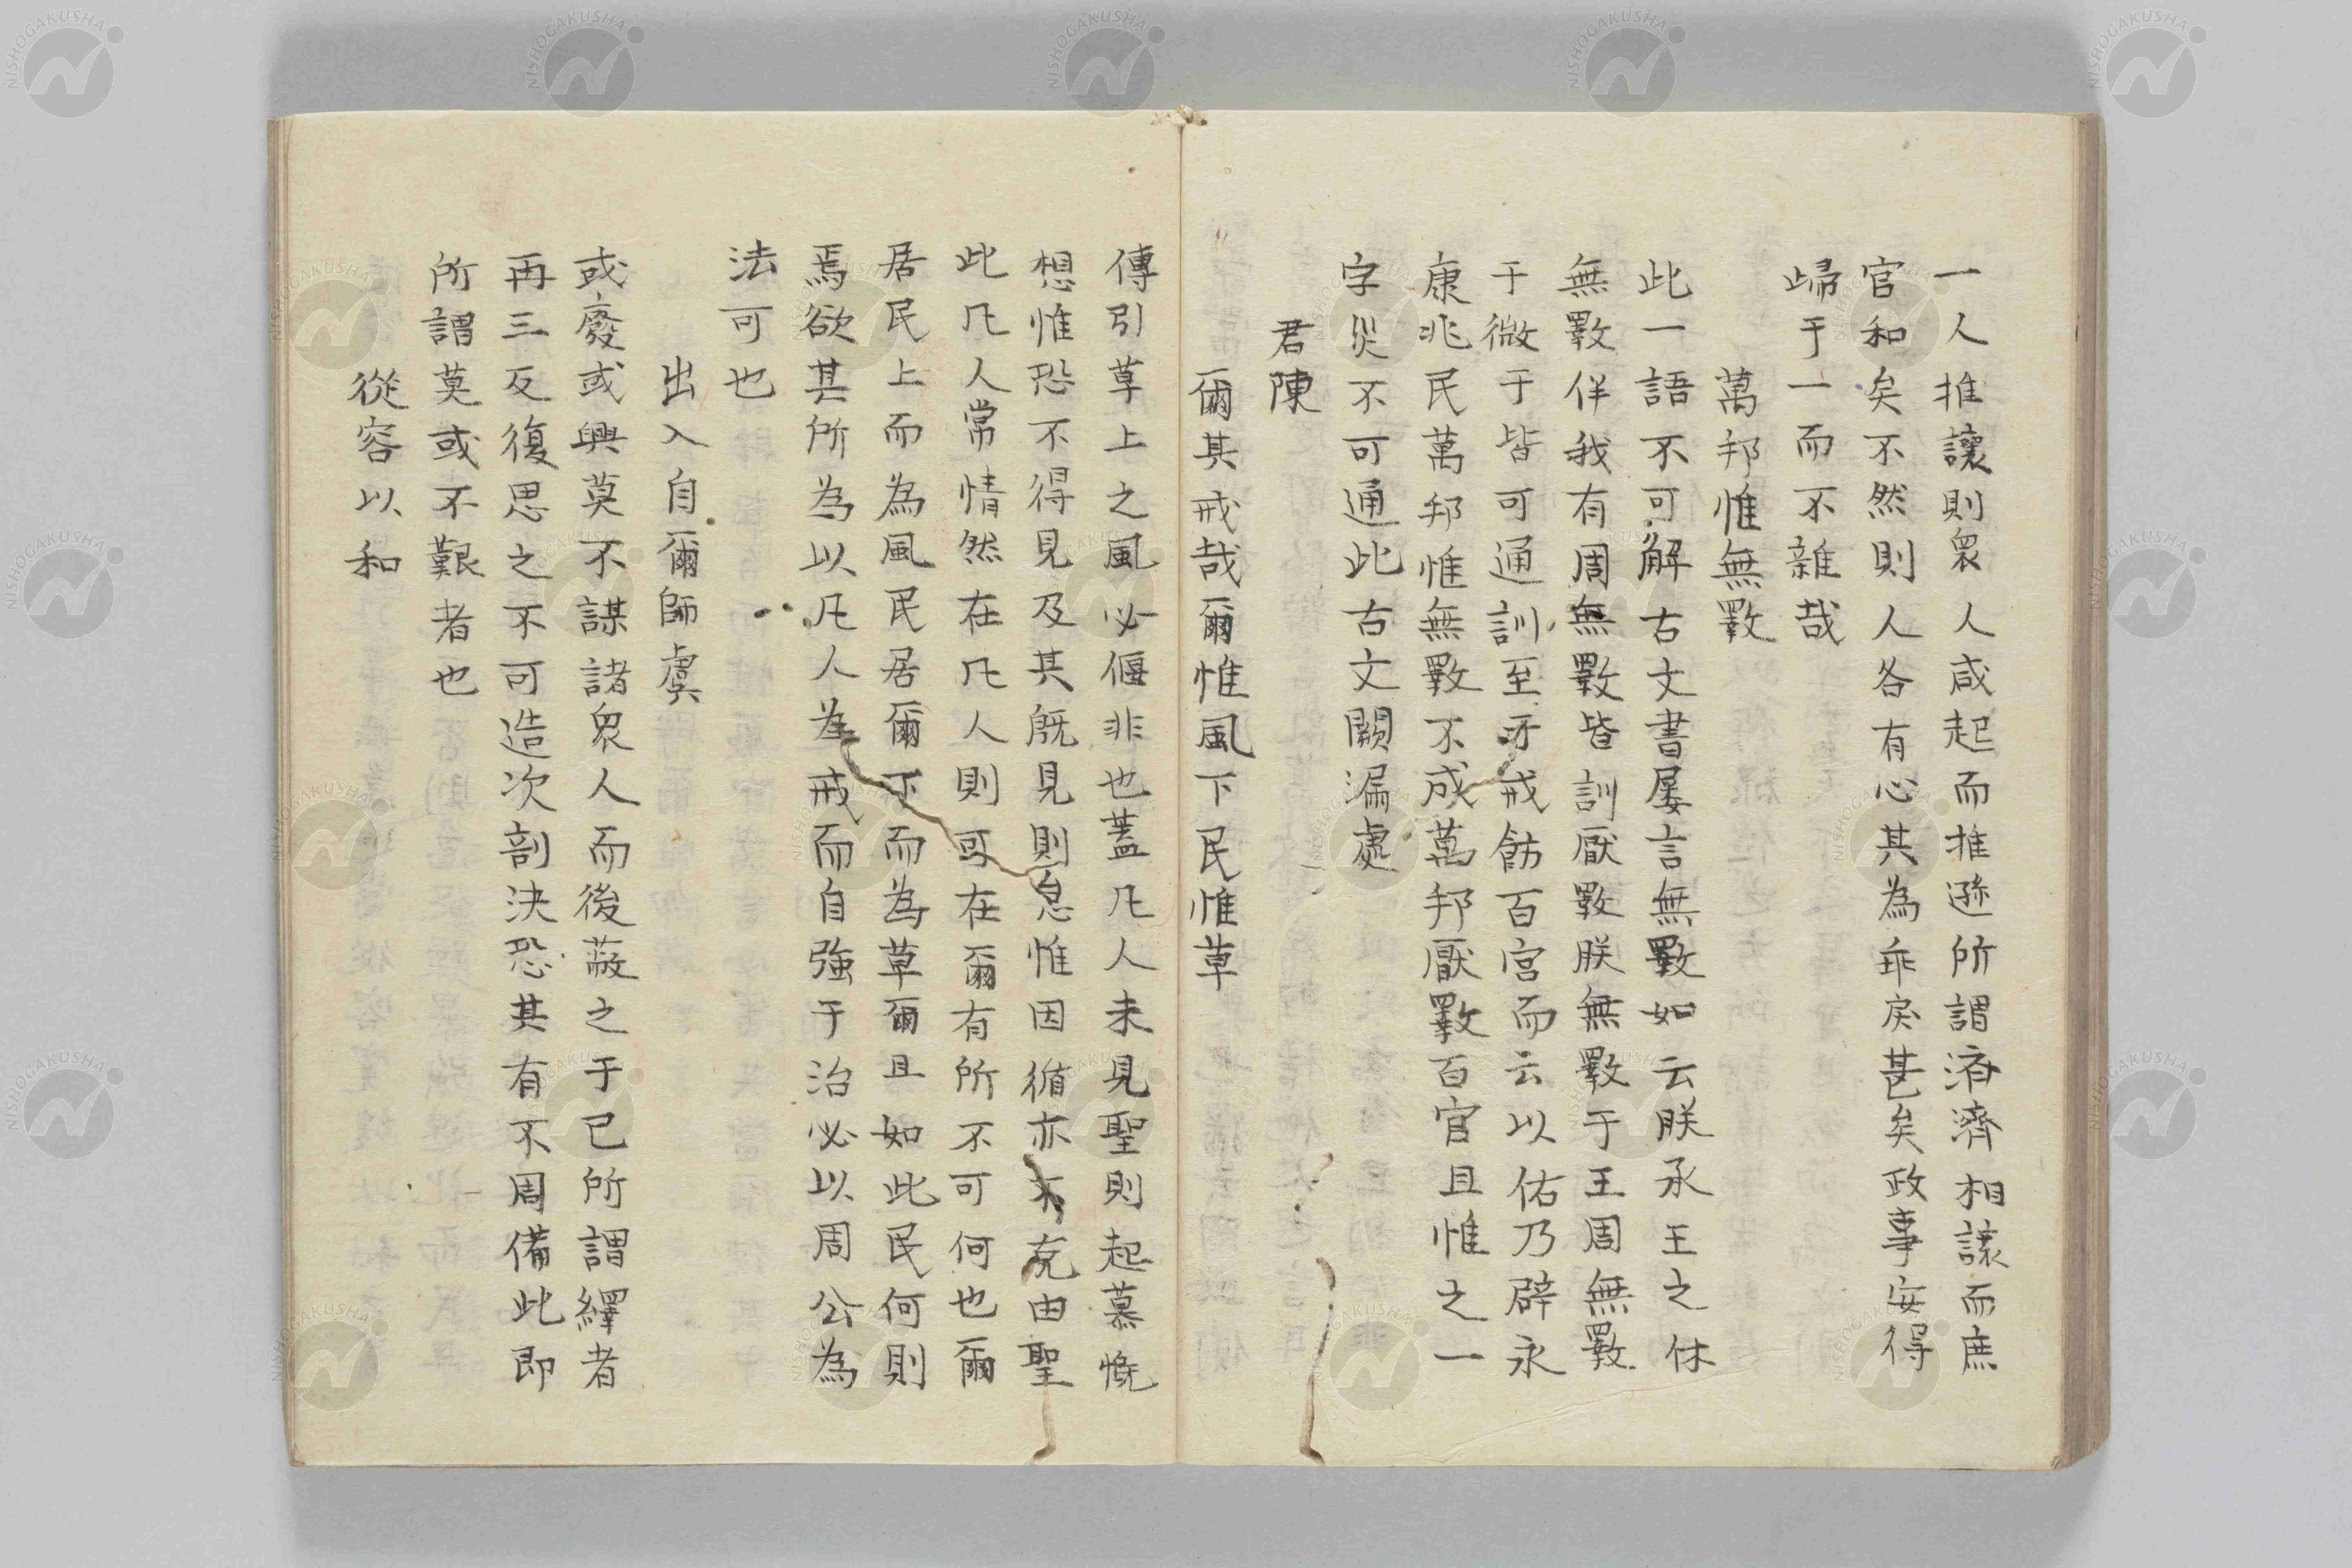 一人推讓則衆人咸起而推遜所謂済濟相讓而庶
官和矣不然則人各有心其為乖戾甚矣政事安得
歸于一而不雜哉
萬邦惟無斁
此一語不可解古文書屡言無斁如云朕承王之休
無斁伴我有周無斁皆訓厭斁朕無斁于王周無斁
于微于皆可通訓至牙戒飭百宮而云以佑乃辟永
康兆民萬邦惟無斁不成萬邦厭斁百官且惟之一
字災不可通此古文闕漏處
君陳
爾其戒哉爾惟風下民惟草
傳引草上之風必偃非也蓋凡人未見聖則起慕慨
想惟恐不得見及其既見則怠惟因循亦不克由聖
此凡人常情然在凡人則可在爾有所不可何也爾
居民上而為風民居爾下而為草爾且如此民何則
焉欲其所為以凡人為戒而自強于治必以周公為
法可也
出入自爾師虞
或廢或興莫不謀諸衆人而後蔽之于已所謂繹者
再三反復思之不可造次剖決恐其有不周備此即
所謂莫或不艱者也
從容以和
NISHOGAKUSHA